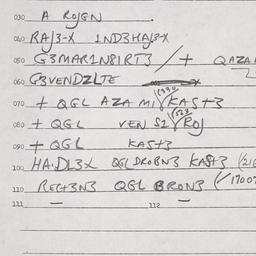 030 A ROJGN
040 RAJ3-X 1ND3HAJ8-X
050 G3MAR1N81RT3 / + QAZA
060 G3VENDZLTE
070 + QGL AZA M1 KAS+3
080 + QGL VEN S1 ROJ
090 + QGL KAS+3
100 HA.DL3X QGL DROBN3 KAS+3
110 REC+3N3 QGL BRON3
111 — 112 —